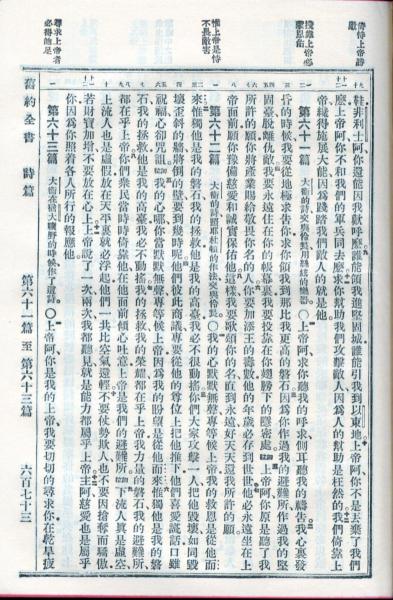 倚恃上帝誇勝
投靠上帝必蒙恩佑
惟上帝是恃不畏敵害
尋求上帝者必得飽足
鞋非利士阿你還能因我歡呼麼誰能領我進堅固城誰能引我到以東地上帝阿你不是丟棄了我們
麼上帝阿你不和我們的軍兵同去麼求你幫助我們攻擊敵人因爲人的幫助是枉然的我們倚靠上
帝纔得施展大能因爲踐踏我們敵人的就是他
第六十一篇 大衛的詩交與伶長用絲絃的樂器〇上帝阿求你聽我的呼求側耳聽我的禱告我心裏發
昏的時候我要從地極求告你求你領我到那比我更高的磐石因爲你作過我的避難所作過我的堅
固臺脫離仇敵我要永遠住在你的帳幕裏我要投靠在你翅膀下的隱密處細拉上帝阿你原是聽了我
所許的願你將產業賜給敬畏你名的人你要加添王的壽數他的年歲必存到世世他必永遠坐在上
帝面前願你豫備慈愛和誠實保佑他這樣我要歌頌你的名直到永遠好天天還我所許的願
第六十二篇 大衛的詩照耶杜頓的作法交與伶長〇我的心默默無聲專等候上帝我的救恩是從他而
來惟獨他是我的磐石我的拯救他是我的高臺我必不很動搖你們大家攻擊一人把他毀壞如同毀
壞歪斜的牆將倒的壁要到幾時呢他們彼此商議專要從他的尊位上把他推下他們喜愛謊話口雖
祝福心卻咒詛細拉我的心哪你當默默無聲專等候上帝因爲我的盼望是從他而來惟獨他是我的磐
石我的拯救他是我的高臺我必不動搖我的拯救我的榮耀都在乎上帝我力量的磐石我的避難所
都在乎上帝你們衆民當時時倚靠他在他面前傾心吐意上帝是我們的避難所細拉下流人真是虛空
上流人也是虛假放在天平裏就必浮起他們一共比空氣還輕不要仗勢欺人也不要因搶奪而驕傲
若財寶加增不要放在心上上帝說了一次兩次我都聽見就是能力都屬乎上帝主阿慈愛也是屬乎
你因爲你照着各人所行的報應他
第六十三篇 大衛在猶大曠野的時候作了這詩〇上帝阿你是我的上帝我要切切的尋求你在乾旱疲
舊約全書 詩篇 第六十一篇至第六十三篇 六百七十三